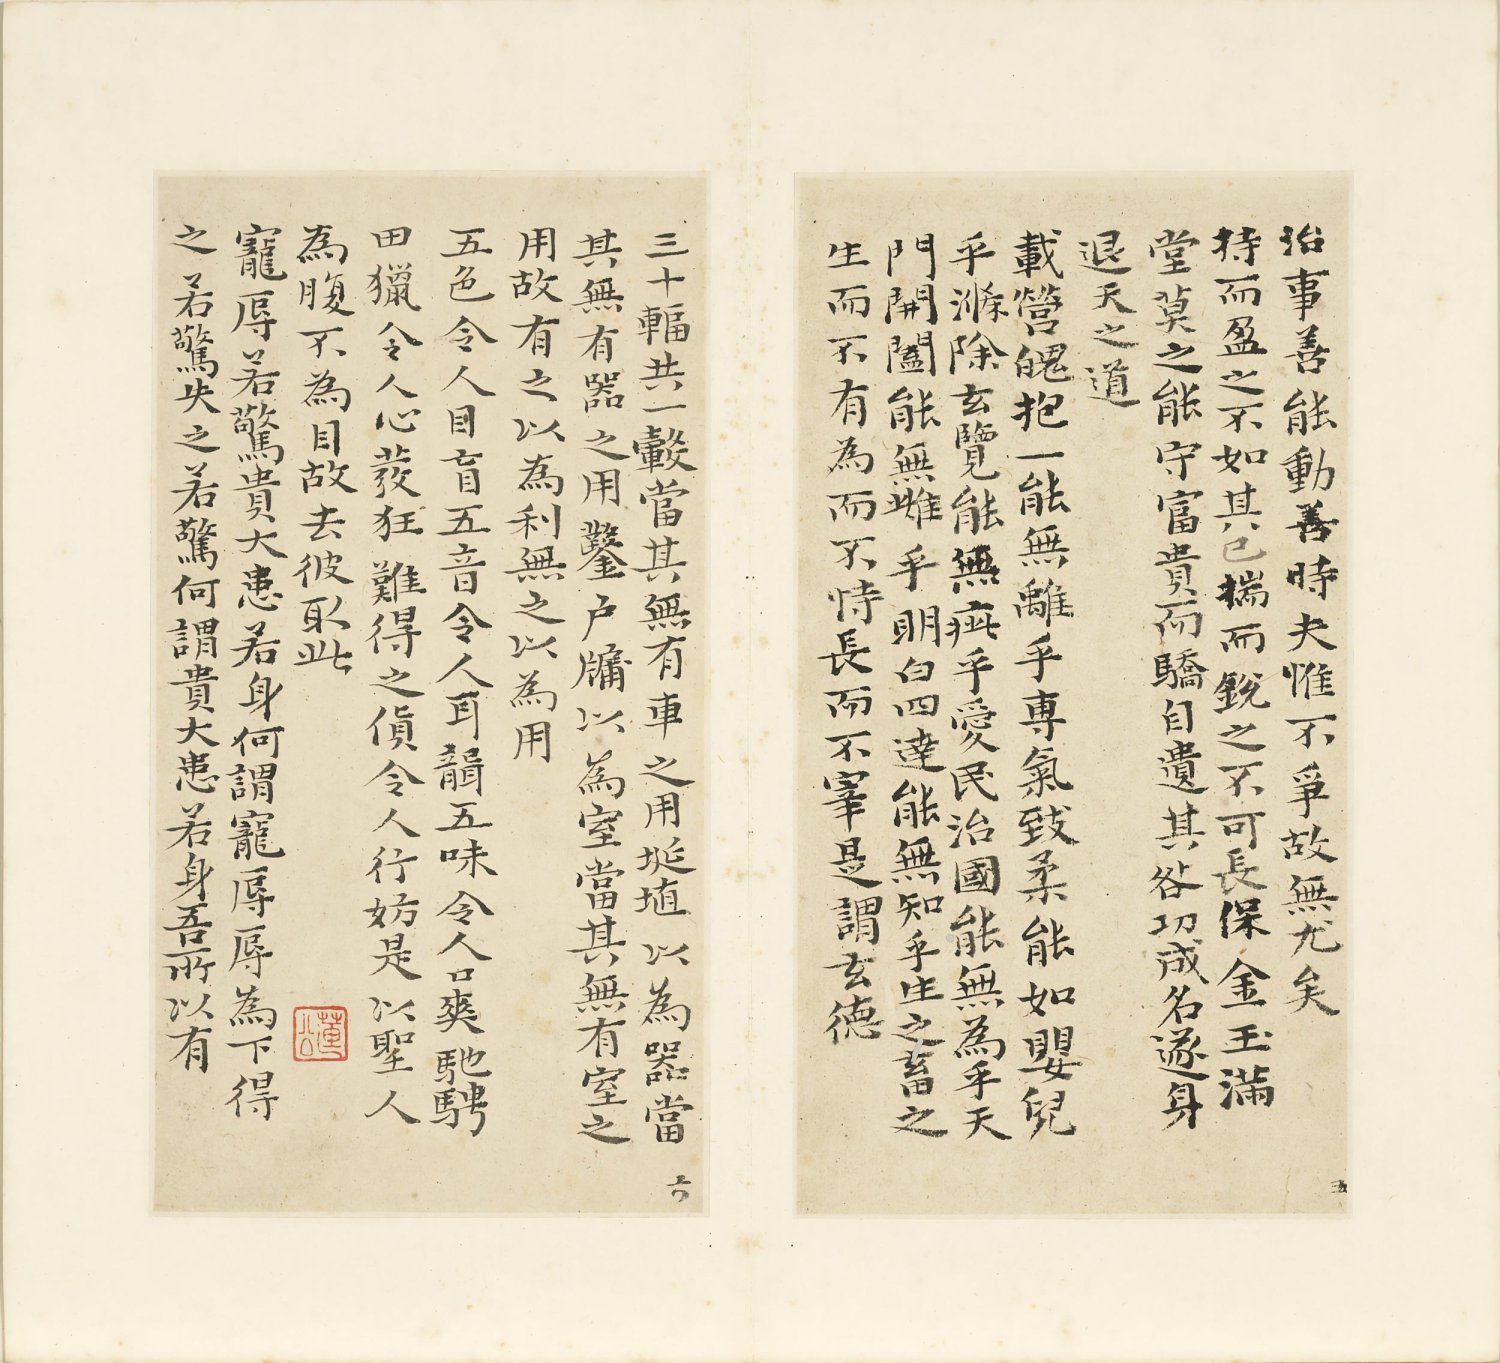 治事善能動善時夫惟不爭故無尤矣
持而盈之不如其已揣而銳之不可長保金玉滿
堂莫之能守富貴而驕自遺其咎功成名遂身
退天之道
載營魄抱一能無離乎專氣致柔能如嬰兒
乎滌除玄覽能無疵乎愛民治國能無為乎天
門開闔能無雌乎明白四達能無知乎生之畜之
生而不有為而不恃長而不宰是謂玄德
五
三十輻共一轂當其無有車之用埏埴以為器當
其無有器之用鑿戶牖以為室當其無有室之
用故有之以為利無之以為用
五色令人目盲五音令人耳聾五味令人口爽馳騁
田獵令人心發狂難得之貨令人行妨是以聖人
為腹不為目故去彼取此
寵辱若驚貴大患若身何謂寵辱辱為下得
之若驚失之若驚何謂貴大患若身吾所以有
六